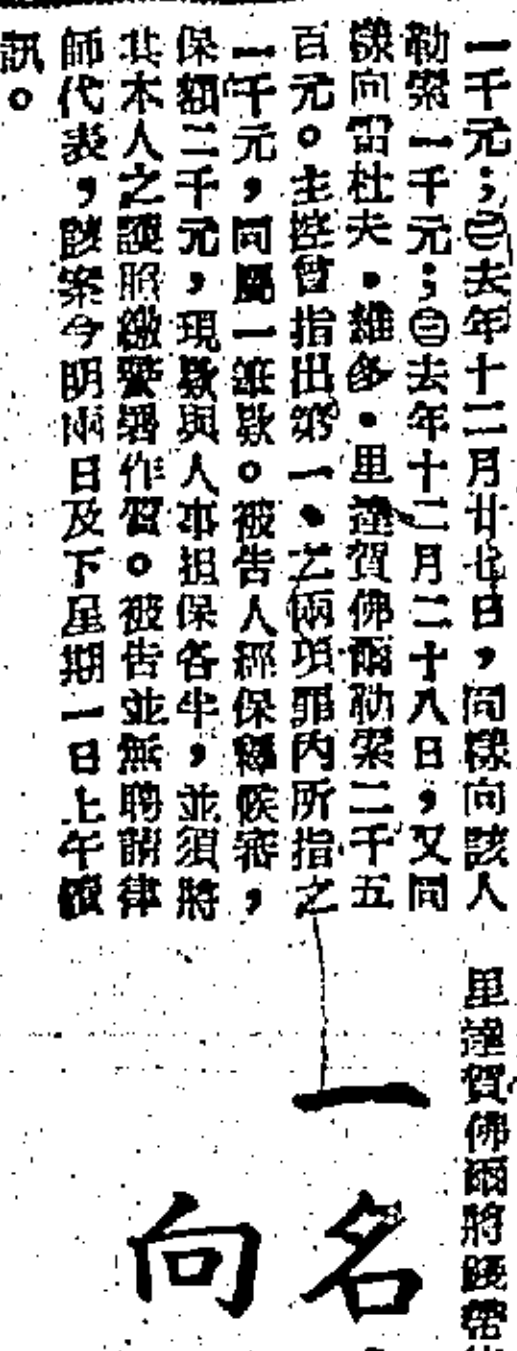 一千元；㊁去年十二月廿七日，同樣向該人
勒索一千元；㊂去年十二月二十八日，又同
樣向留杜夫·維多·里達賀佛爾勒索二千五
百元。主控曾指出第一、乙兩項罪內所指之
一千元，同屬一筆欵。被告人經保釋候審，
保額二千元，現欵與人事担保各半，並須將
其本人之護照繳警署作質。被告並無聘請律
師代表，該案今明兩日及下星期一日上午續
訊。
里達賀佛爾將錢帶
一名
向